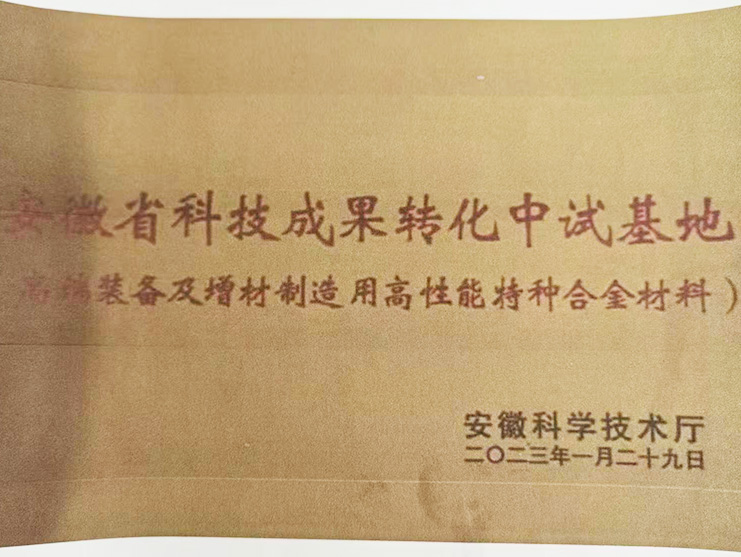 安徽省科技成果转化中试基地
高端装备及增材制造用高性能特种合金材料）
安徽科学技术厅
二〇二三年一月二十九日